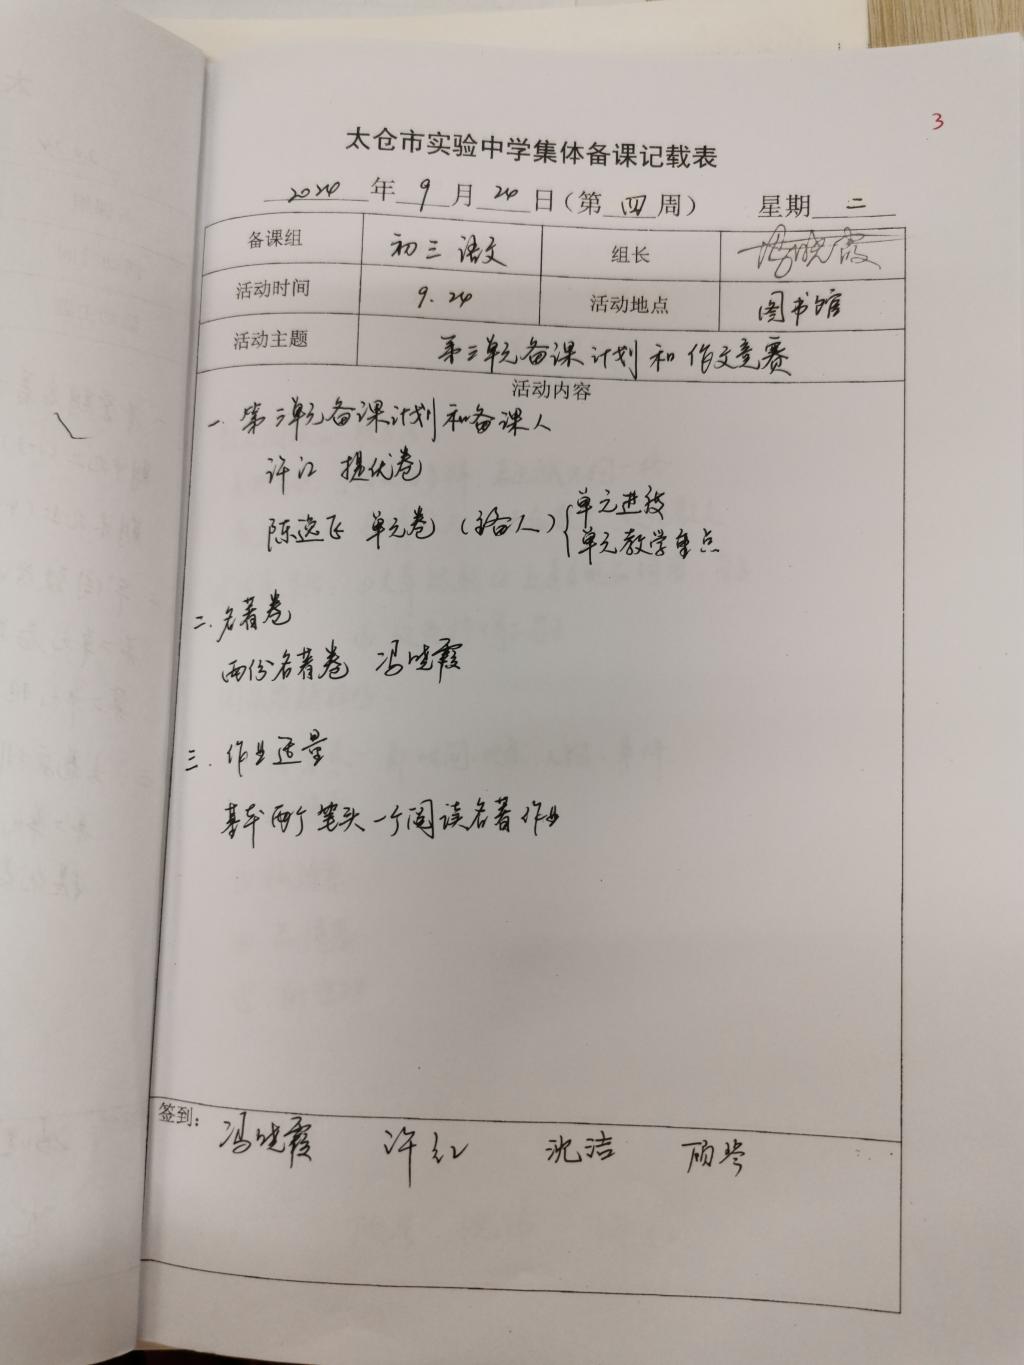 3
太仓市实验中学集体备课记载表
2024 年 9 月 24 日（第 四 周） 星期 二
备课组 初三语文 组长 冯晓霞
活动时间 9.24 活动地点 图书馆
活动主题 第三单元备课计划和作文竞赛
活动内容
一. 第三单元备课计划和备课人
许江 提优卷
陈逸飞 单元卷 （主备人） 单元进度
单元教学重点
二. 名著卷
两份名著卷 冯晓霞
三. 作业适量
基本两个笔头一个阅读名著作业
签到： 冯晓霞 许红 沈洁 顾琴